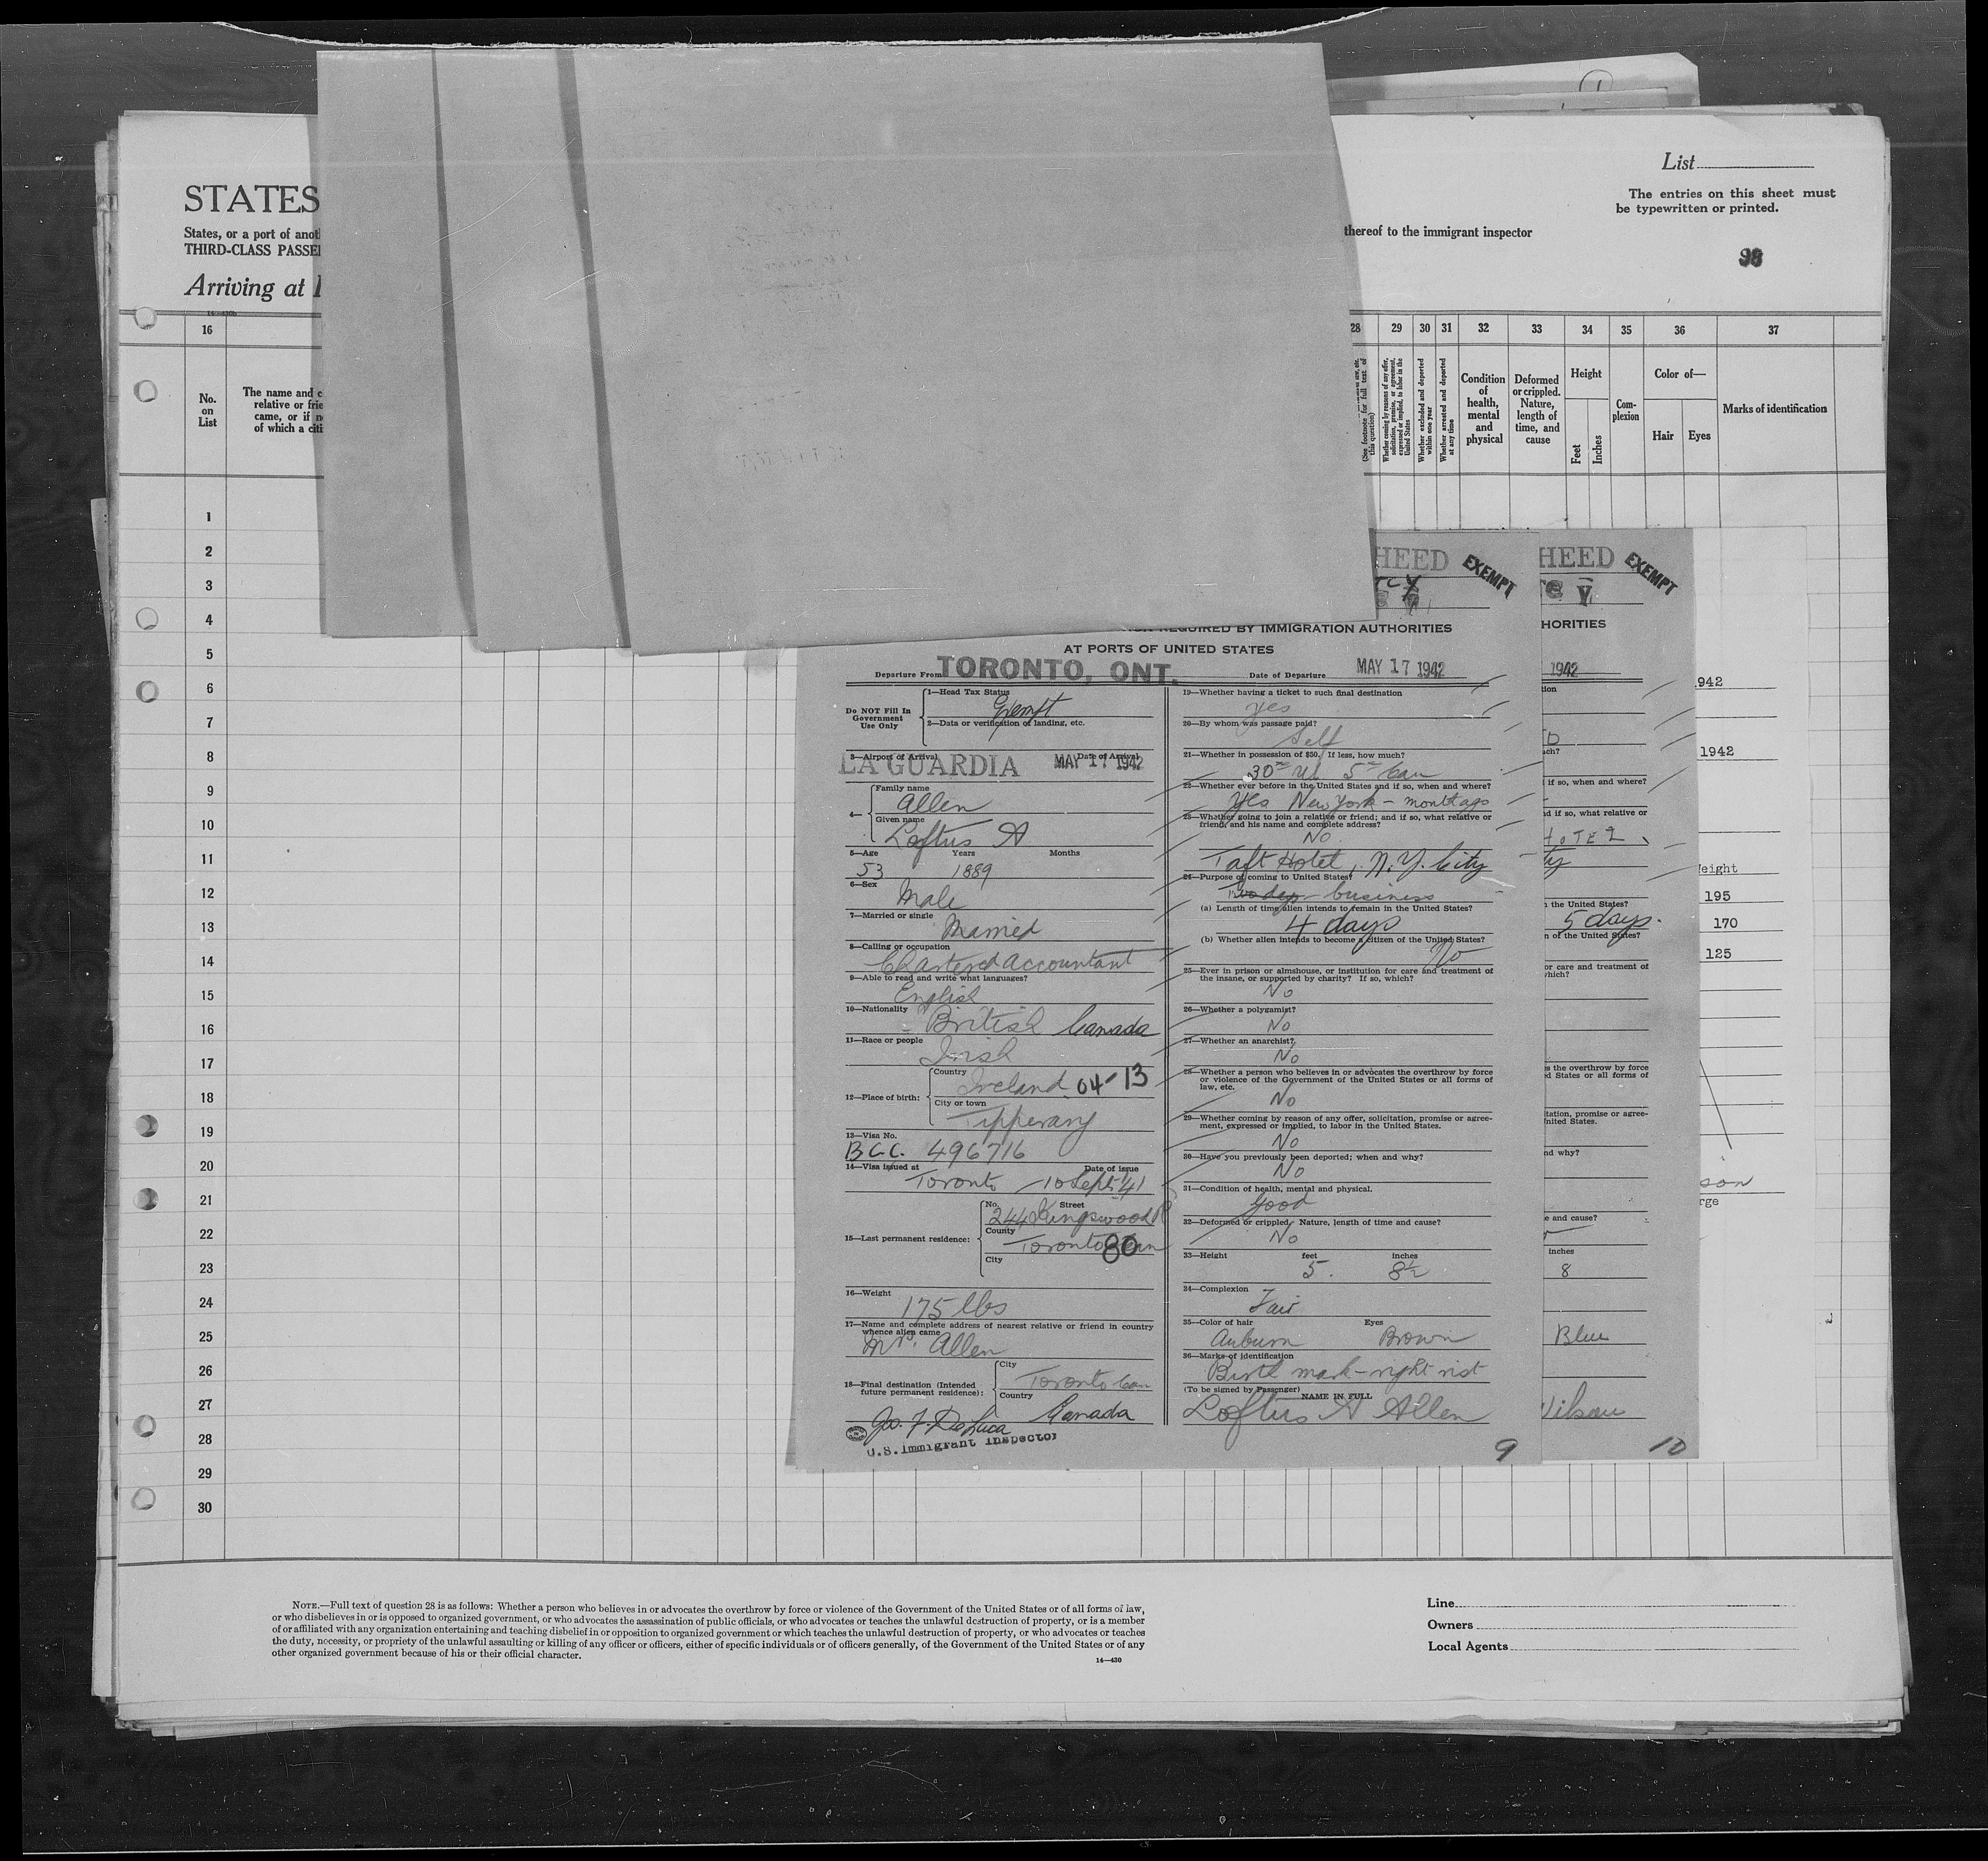 List
The entries on this sheet must
be typewritten or printed.
STATES
States, or a port of anot
THIRD-CLASS PASSE
thereof to the immigrant inspector
98
Arriving at
16
28 29 30 31 32 33 34 35 36 37
No.
on
List
The name and c
relative or frie
came, or if n
of which a citi
(See footnote for full text of
this question)
Whether coming by reasons of any offer,
solicitation, promise, or agreement,
expressed or implied, to labor in the
United States
Whether excluded and deported
within one year
Whether arrested and deported
at any time
Condition
of
health,
mental
and
physical
Deformed
or crippled.
Nature,
length of
time, and
cause
Height
Feet
Inches
Com-
plexion
Color of—
Hair
Eyes
Marks of identification
1
2
3
4
5
6
7
8
9
10
11
12
13
14
15
16
17
18
19
20
21
22
23
24
25
26
27
28
29
30
HEED EXEMPT
REQUIRED BY IMMIGRATION AUTHORITIES
AT PORTS OF UNITED STATES
Departure From TORONTO, ONT.
Date of Departure MAY 17 1942
Do NOT Fill In
Government
Use Only
1—Head Tax Status
Exempt
2—Data or verification of landing, etc.
3—Airport of Arrival Date of Arrival
LA GUARDIA MAY 17 1942
4—
Family name
Allen
Given name
Loftus A
5—Age Years Months
53 1889
6—Sex
Male
7—Married or single
Married
8—Calling or occupation
Chartered Accountant
9—Able to read and write what languages?
English
10—Nationality
British Canada
11—Race or people
Irish
12—Place of birth:
Country
Ireland 04-13
City or town
Tipperary
13—Visa No.
B.C.C. 496716
14—Visa issued at Date of issue
Toronto 10 Sept 41
15—Last permanent residence:
No. Street
244 Kingswood Rd
County
Toronto Can 80
City
16—Weight
175 lbs
17—Name and complete address of nearest relative or friend in country
whence alien came
Mrs. Allen
18—Final destination (Intended
future permanent residence):
City
Toronto Can
Country
Canada
Jo. F. DeLuca
U.S. immigrant inspector
19—Whether having a ticket to such final destination
yes
20—By whom was passage paid?
Self
21—Whether in possession of $50. If less, how much?
30 US 5 Can
22—Whether ever before in the United States and if so, when and where?
Yes New York - month ago
23—Whether going to join a relative or friend; and if so, what relative or
friend, and his name and complete address?
No
Taft Hotel, N.Y. City
24—Purpose of coming to United States?
business
(a) Length of time alien intends to remain in the United States?
4 days
(b) Whether alien intends to become a citizen of the United States?
No
25—Ever in prison or almshouse, or institution for care and treatment of
the insane, or supported by charity? If so, which?
No
26—Whether a polygamist?
No
27—Whether an anarchist?
No
28—Whether a person who believes in or advocates the overthrow by force
or violence of the Government of the United States or all forms of
law, etc.
No
29—Whether coming by reason of any offer, solicitation, promise or agree-
ment, expressed or implied, to labor in the United States.
No
30—Have you previously been deported; when and why?
No
31—Condition of health, mental and physical.
Good
32—Deformed or crippled. Nature, length of time and cause?
No
33—Height feet inches
5. 8½
34—Complexion
Fair
35—Color of hair Eyes
Auburn Brown
36—Marks of identification
Birth mark - right rist
(To be signed by Passenger)
NAME IN FULL
Loftus A Allen
9
HEED EXEMPT
HORITIES
1942
if so, when and where?
d if so, what relative or
HOTEL
n the United States?
5 days.
n of the United States?
or care and treatment of
which?
s the overthrow by force
d States or all forms of
itation, promise or agree-
United States.
nd why?
e and cause?
inches
8
Blue
Wilson
10
942
1942
eight
195
170
125
son
rge
NOTE.—Full text of question 28 is as follows: Whether a person who believes in or advocates the overthrow by force or violence of the Government of the United States or of all forms of law,
or who disbelieves in or is opposed to organized government, or who advocates the assassination of public officials, or who advocates or teaches the unlawful destruction of property, or is a member
of or affiliated with any organization entertaining and teaching disbelief in or opposition to organized government or which teaches the unlawful destruction of property, or who advocates or teaches
the duty, necessity, or propriety of the unlawful assaulting or killing of any officer or officers, either of specific individuals or of officers generally, of the Government of the United States or of any
other organized government because of his or their official character.
14—430
Line
Owners
Local Agents